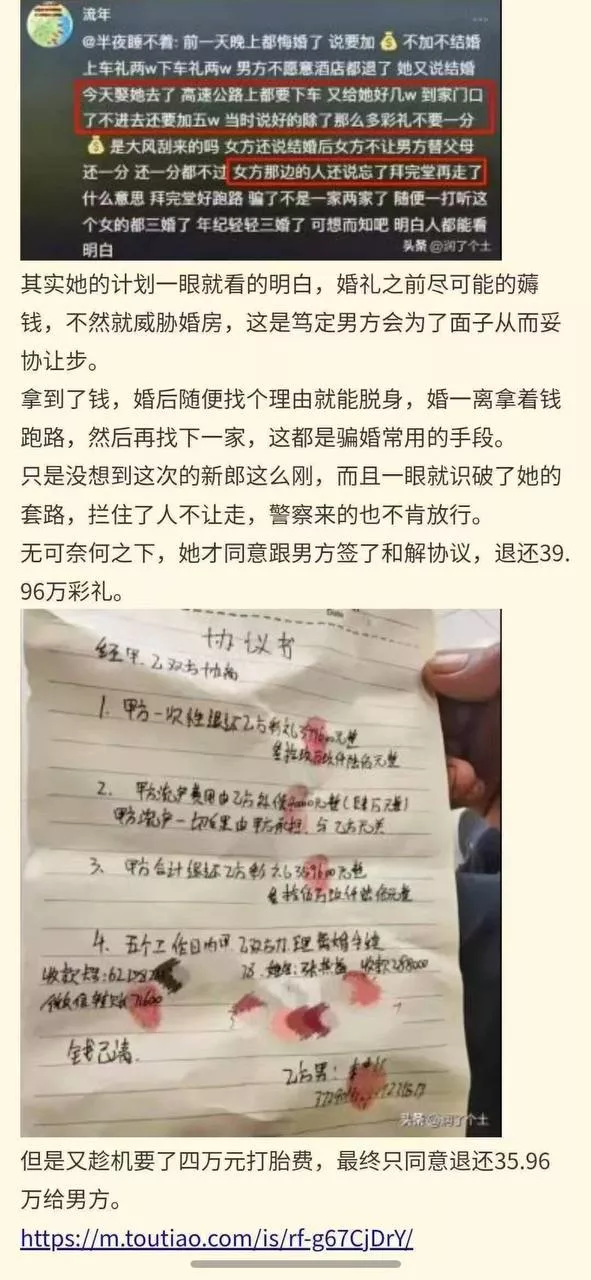 流年
@半夜睡不着: 前一天晚上都悔婚了 说要加💰 不加不结婚
上车礼两w下车礼两w 男方不愿意酒店都退了 她又说结婚
今天娶她去了 高速公路上都要下车 又给她好几w 到家门口
了不进去还要加五w 当时说好的除了那么多彩礼不要一分
💰是大风刮来的吗 女方还说结婚后女方不让男方替父母
还一分 还一分都不过 女方那边的人还说忘了拜完堂再走了
什么意思 拜完堂好跑路 骗了不是一家两家了 随便一打听这
个女的都三婚了 年纪轻轻三婚了 可想而知吧 明白人都能看
明白
头条 @润了个土
其实她的计划一眼就看的明白，婚礼之前尽可能的薅
钱，不然就威胁婚房，这是笃定男方会为了面子从而妥
协让步。
拿到了钱，婚后随便找个理由就能脱身，婚一离拿着钱
跑路，然后再找下一家，这都是骗婚常用的手段。
只是没想到这次的新郎这么刚，而且一眼就识破了她的
套路，拦住了人不让走，警察来的也不肯放行。
无可奈何之下，她才同意跟男方签了和解协议，退还39.
96万彩礼。
Date
协议书
经甲、乙双方协商
1、甲方一次性退还乙方彩礼 元整
2、甲方流产费用由乙方 元整
甲方流产一切后果由甲方承担、与乙方无关
3、甲方合计退还乙方彩礼359600元整
叁拾伍万玖仟陆佰元整
4、五个工作日内甲、乙双方办理离婚手续
收款 收款288000
微信转账71600
钱已清
乙方男：
头条 @润了个土
但是又趁机要了四万元打胎费，最终只同意退还35.96
万给男方。
https://m.toutiao.com/is/rf-g67CjDrY/